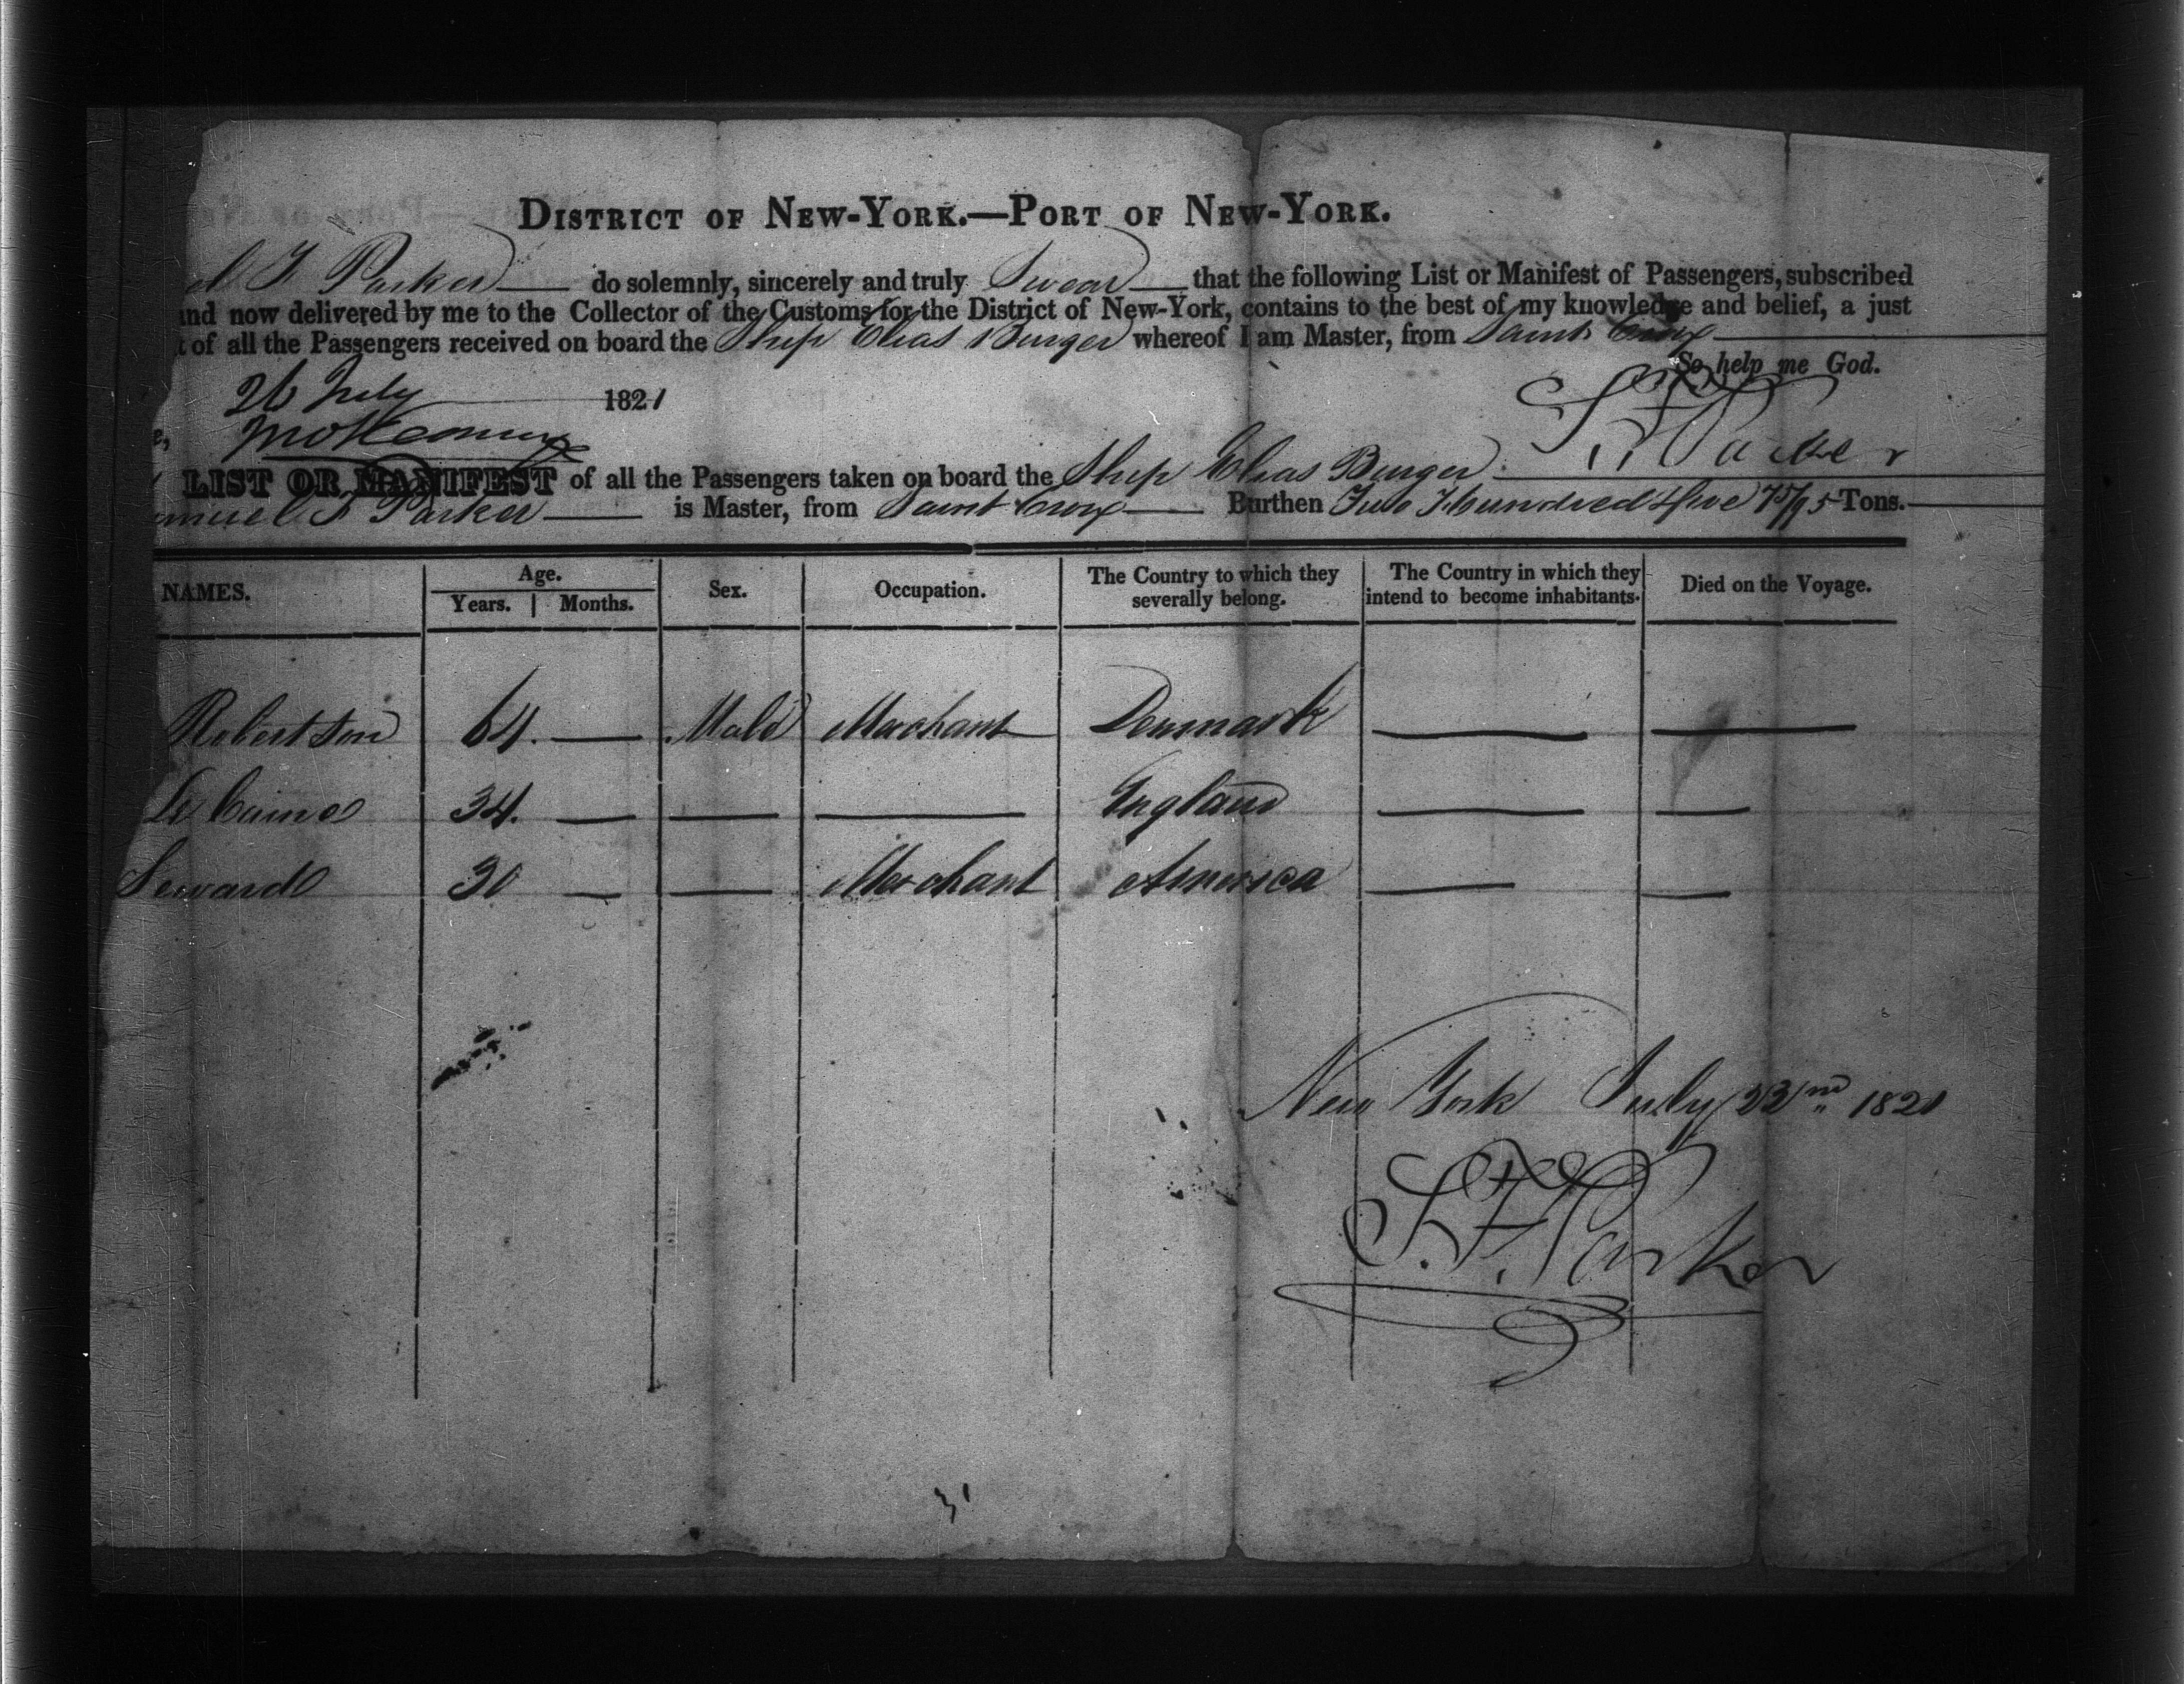 DISTRICT OF NEW-YORK.—PORT OF NEW-YORK.
el F Parker — do solemnly, sincerely and truly Swear — that the following List or Manifest of Passengers, subscribed
and now delivered by me to the Collector of the Customs for the District of New-York, contains to the best of my knowledge and belief, a just
t of all the Passengers received on board the Ship Elias Burger whereof I am Master, from Saint Croix
So help me God.
26 July 1821
S F Parker
LIST OR MANIFEST of all the Passengers taken on board the Ship Elias Burger
amuel F Parker — is Master, from Saint Croix — Burthen Two Hundred & five 75/95 Tons.
NAMES. Age. Years. Months. Sex. Occupation. The Country to which they severally belong. The Country in which they intend to become inhabitants. Died on the Voyage.
Robertson 64. — Male Merchant Denmark — —
34. — — — England — —
Seward 30 — — Merchant America — —
New York July 23rd 1821
S. F. Parker
31